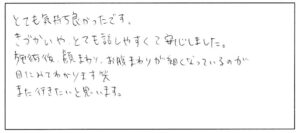 とても気持ち良かったです。
きづかいや とても話しやすくて安心しました。
施術後、顔まわり、お腹まわりが細くなっているのが
目にみてわかります笑
また行きたいと思います。